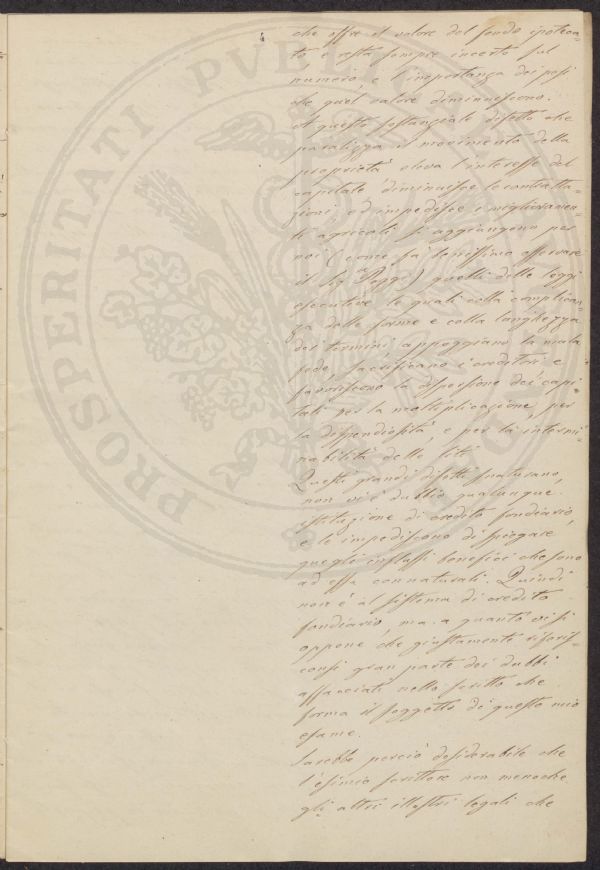 che offre il valore del fondo ipoteca-
to e resta sempre incerto sul
numero, e l'importanza dei pesi
che quel valore diminuiscono.
A questo sostanziale difetto che
paralizza il movimento della
proprietà eleva l'interesse del
capitale, diminuisce le contratta-
zioni, ed impedisce i miglioramen-
ti agricoli si aggiungono per
noi (come fà benissimo osservare
il Sig. Poggi) quelli delle leggi
esecutive le quali colla complican-
za delle forme e colla lunghezza
dei termini, appoggiano la mala
fede, sacrificano i creditori e
favoriscono la dispersione dei capi-
tali per la moltiplicazione, per
la dispendiosità, e per la intermi-
nabilità delle liti.
Questi grandi difetti snaturano,
non vi è dubbio qualunque
istituzione di credito fondiario,
e le impediscono di spiegare
quegli influssi benefici che sono
ad essa connaturali. Quindi
non è al sistema di credito
fondiario, ma a quanto vi si
oppone che giustamente
gran parte dei dubbi
affacciati nello scritto che
forma il soggetto di questo mio
esame.
Sarebbe perciò desiderabile che
l'esimio scrittore non meno che
gli altri illustri legali che
PROSPERITATI PVBLICAE